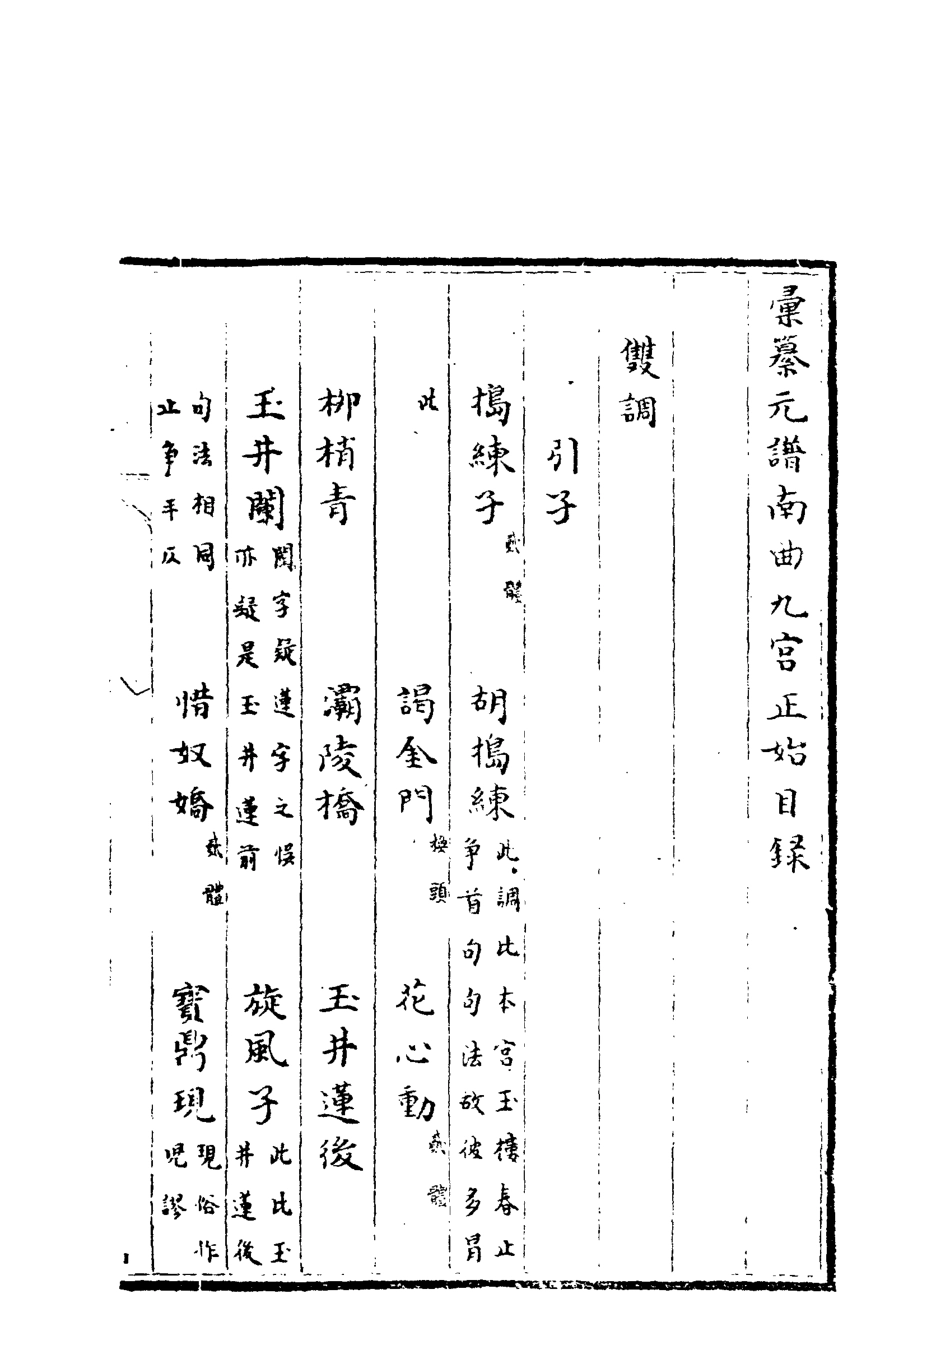 彙纂元譜南曲九宮正始目録
雙調
引子
搗練子貳體　胡搗練此調比本宮玉樓春止争首句句法故彼多冒
此　謁金門換頭　花心動貳體
柳梢青　灞陵橋　玉井蓮後
玉井闌闌字疑蓮字之悮亦疑是玉井蓮前　旋風子此比玉井蓮後
句法相同止争平仄　惜奴嬌貳體　寳鼎現現俗作児謬